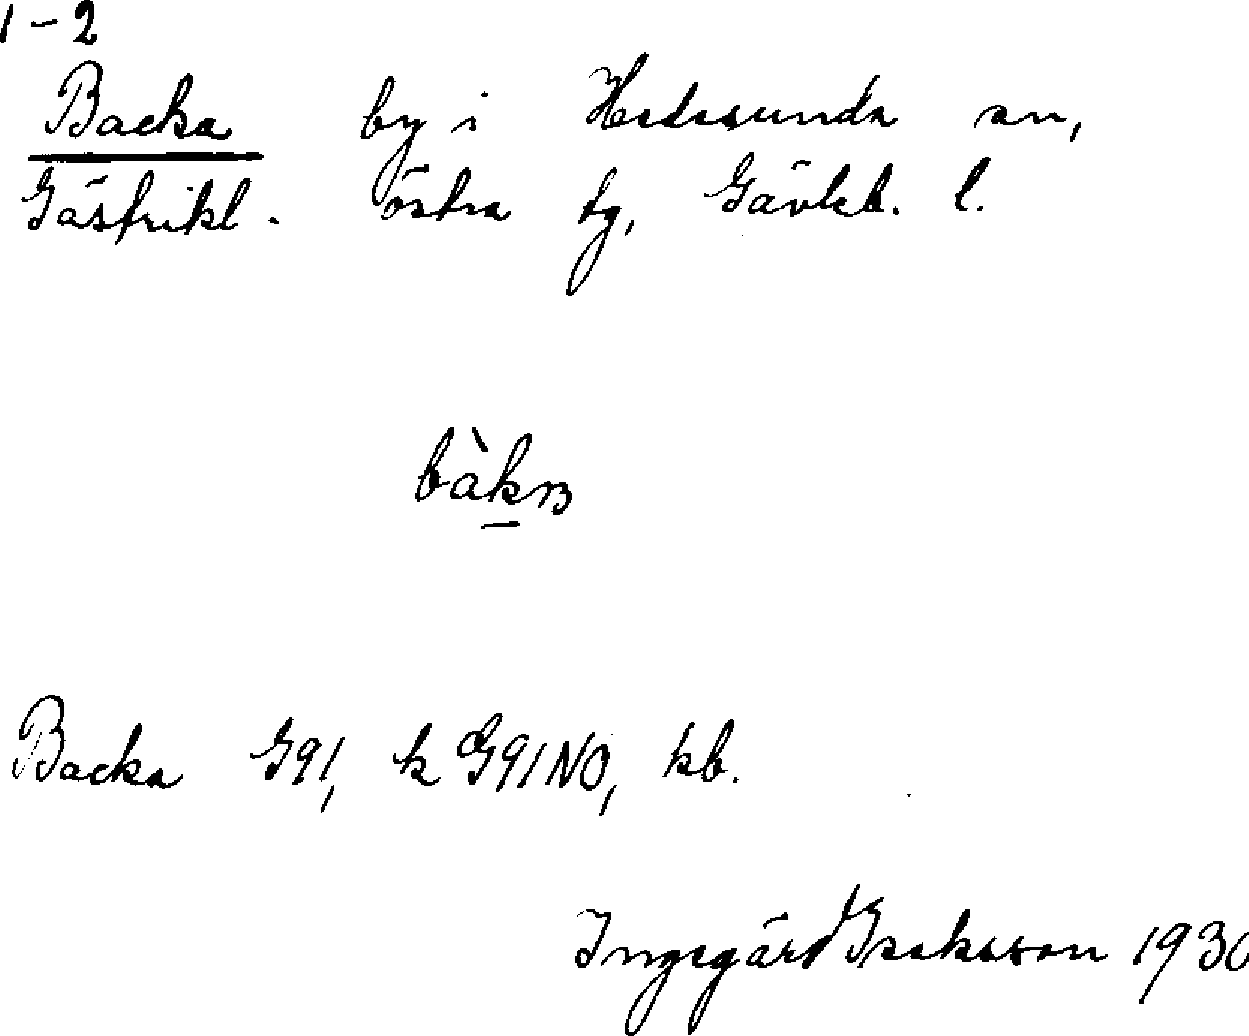 1-2
Backa by i Hedesunda sn,
Gästrikl. östra tg, Gävleb. l.
bàkɐ
Backa G91, k G91NO, kb.
Ingegärd Isaksson 1930